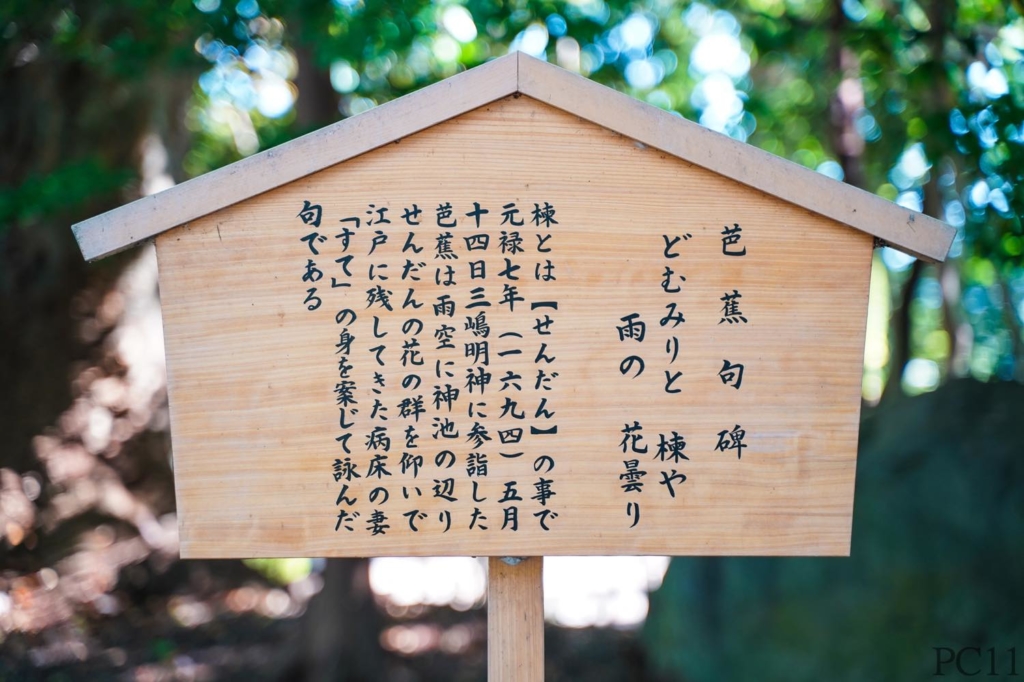 芭蕉句碑
どむみりと 楝や
雨の 花曇り
楝とは【せんだん】の事で
元禄七年（一六九四）五月
十四日三嶋明神に参詣した
芭蕉は雨空に神池の辺り
せんだんの花の群を仰いで
江戸に残してきた病床の妻
「すて」の身を案じて詠んだ
句である
PC11